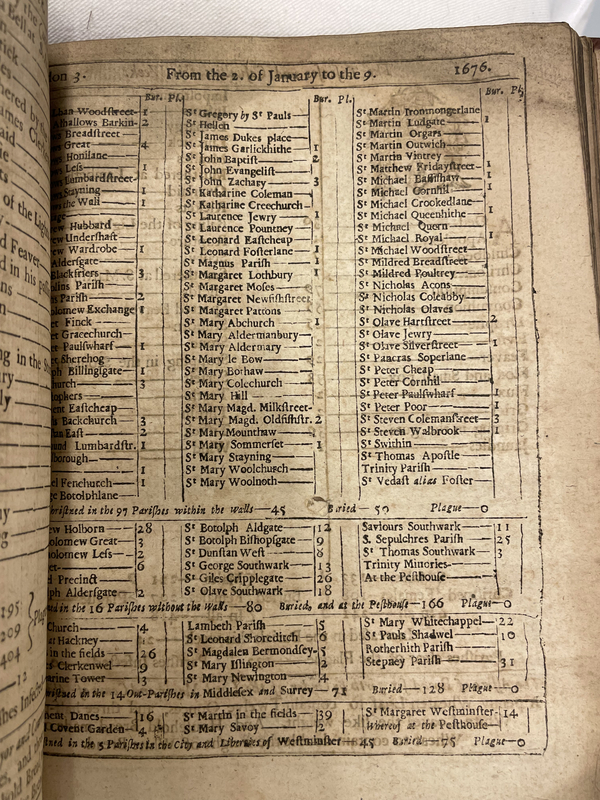 From the 2. of January to the 9. 1676.
Bur. Pl.
Woodstreet— 1
Allhallows Barkin- 2
Breadstreet—
Great— 4
Honilane—
Less— 1
Lumbardstreet—
Stayning— 1
the Wall— 1
Hubbard—
Undershaft—
Wardrobe— 1
Aldersgate—
Blackfriers— 3
Parish—
Parish— 2
Exchange 1
Finck—
Gracechurch—
Paulswharf— 1
Sherehog—
Billingsgate— 1
Church— 3
Eastcheap—
Backchurch— 3
East— 2
Lumbardstr. 1
borough—
1
Fenchurch— 1
Botolphlane—
Bur. Pl.
St Gregory by St Pauls—
St Hellen—
St James Dukes place—
St James Garlickhithe— 1
St John Baptist— 2
St John Evangelist—
St John Zachary— 3
St Katharine Coleman—
St Katharine Creechurch—
St Laurence Jewry— 1
St Laurence Pountney—
St Leonard Eastcheap—
St Leonard Fosterlane— 1
St Magnus Parish— 1
St Margaret Lothbury 1
St Margaret Moses—
St Margaret Newfishstreet
St Margaret Pattons—
St Mary Abchurch— 1
St Mary Aldermanbury—
St Mary Aldermary—
St Mary le Bow—
St Mary Bothaw—
St Mary Colechurch—
St Mary Hill—
St Mary Magd. Milkstreet-
St Mary Magd. Oldfishstr. 2
St Mary Mounthaw—
St Mary Sommerset— 1
St Mary Stayning—
St Mary Woolchurch—
St Mary Woolnoth—
Bur. Pl.
St Martin Ironmongerlane
St Martin Ludgate— 1
St Martin Orgars—
St Martin Outwich—
St Martin Vintrey—
St Matthew Fridaystreet— 1
St Michael Bassishaw— 1
St Michael Cornhil— 1
St Michael Crookedlane—
St Michael Queenhithe— 1
St Michael Quern—
St Michael Royal— 1
St Michael Woodstreet—
St Mildred Breadstreet—
St Mildred Poultrey—
St Nicholas Acons—
St Nicholas Coleabby—
St Nicholas Olaves—
St Olave Hartstreet— 2
St Olave Jewry—
St Olave Silverstreet— 1
St Pancras Soperlane—
St Peter Cheap—
St Peter Cornhil—
St Peter Paulswharf— 1
St Peter Poor— 1
St Steven Colemanstreet— 3
St Steven Walbrook— 1
St Swithin—
St Thomas Apostle
Trinity Parish—
St Vedast alias Foster—
in the 97 Parishes within the walls—45 Buried—50 Plague—0
Holborn— 28
Great— 3
Less— 2
6
Precinct—
Aldersgate— 2
St Botolph Aldgate— 12
St Botolph Bishopsgate— 9
St Dunstan West— 8
St George Southwark— 13
St Giles Cripplegate— 26
St Olave Southwark— 18
Saviours Southwark— 11
S. Sepulchres Parish— 25
St Thomas Southwark— 3
Trinity Minories—
At the Pesthouse—
in the 16 Parishes without the Walls—80 Buried, and at the Pesthouse—166 Plague—0
Church— 4
Hackney—
in the fields— 26
Clerkenwel— 9
Tower— 3
Lambeth Parish— 5
St Leonard Shoreditch— 6
St Magdalen Bermondsey- 5
St Mary Islington— 2
St Mary Newington— 4
St Mary Whitechappel— 22
St Pauls Shadwel— 10
Rotherhith Parish—
Stepney Parish— 31
in the 14 Out-Parishes in Middlesex and Surrey—71 Buried—128 Plague—0
Danes— 16
Covent Garden— 4
St Martin in the fields— 39
St Mary Savoy— 2
St Margaret Westminster- 14
Whereof at the Pesthouse—
in the 5 Parishes in the City and Liberties of Westminster—45 Buried—75 Plague—0